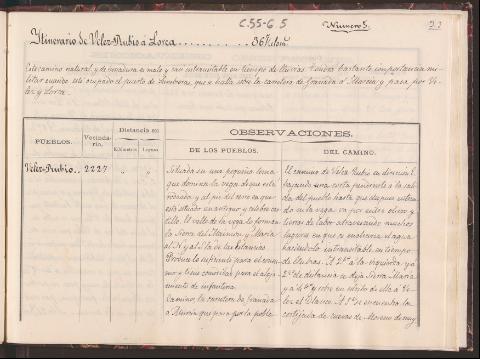 C.55-G.5
Número 5.
22
Itinerario de Velez-Rubio á Lorca .......... 36 Kilom.s
Este camino natural y de herradura es malo y casi intransitable en tiempo de lluvias. Tendrá bastante importancia mi-
litar cuando esté ocupado el puerto de Lumbreras, que se halla sobre la carretera de Granada á Murcia y pasa por Ve-
lez y Lorca.
PUEBLOS.
Vecinda-
rio.
Distancia en
Kilómetros
Leguas
OBSERVACIONES.
DE LOS PUEBLOS.
DEL CAMINO.
Velez-Rubio..
2227
"
"
Situada en una pequeña loma
que domina la vega de que está
rodeada y al pié del cerro en que
está situado su antiguo y
tillo. El valle de la vega lo forman
la Sierra del y María
al N. y al S. la de las Estancias
Produce lo suficiente para el consu-
mo y tiene comodidad para el aloja-
miento de infantería.
Caminos, la carretera de Granada
á Murcia que pasa por la pobla-
El camino de Velez Rubio en direccion E.
bajando una corta pendiente á la sali-
da del pueblo hasta que despues entran-
do en la vega va por entre olivos y
tierras de labor atravesando muchos
lugares en que se encharca el agua
haciéndolo intransitable en tiempo
de lluvias. A 2 K.s á la izquierda y a
2 K.s de distancia se deja Sierra María
y á 4 K.s y sobre un estribo de ella á Ve-
lez el Blanco. A 5 K.s se encuentra la
cortijada de cuevas de Moreno de muy